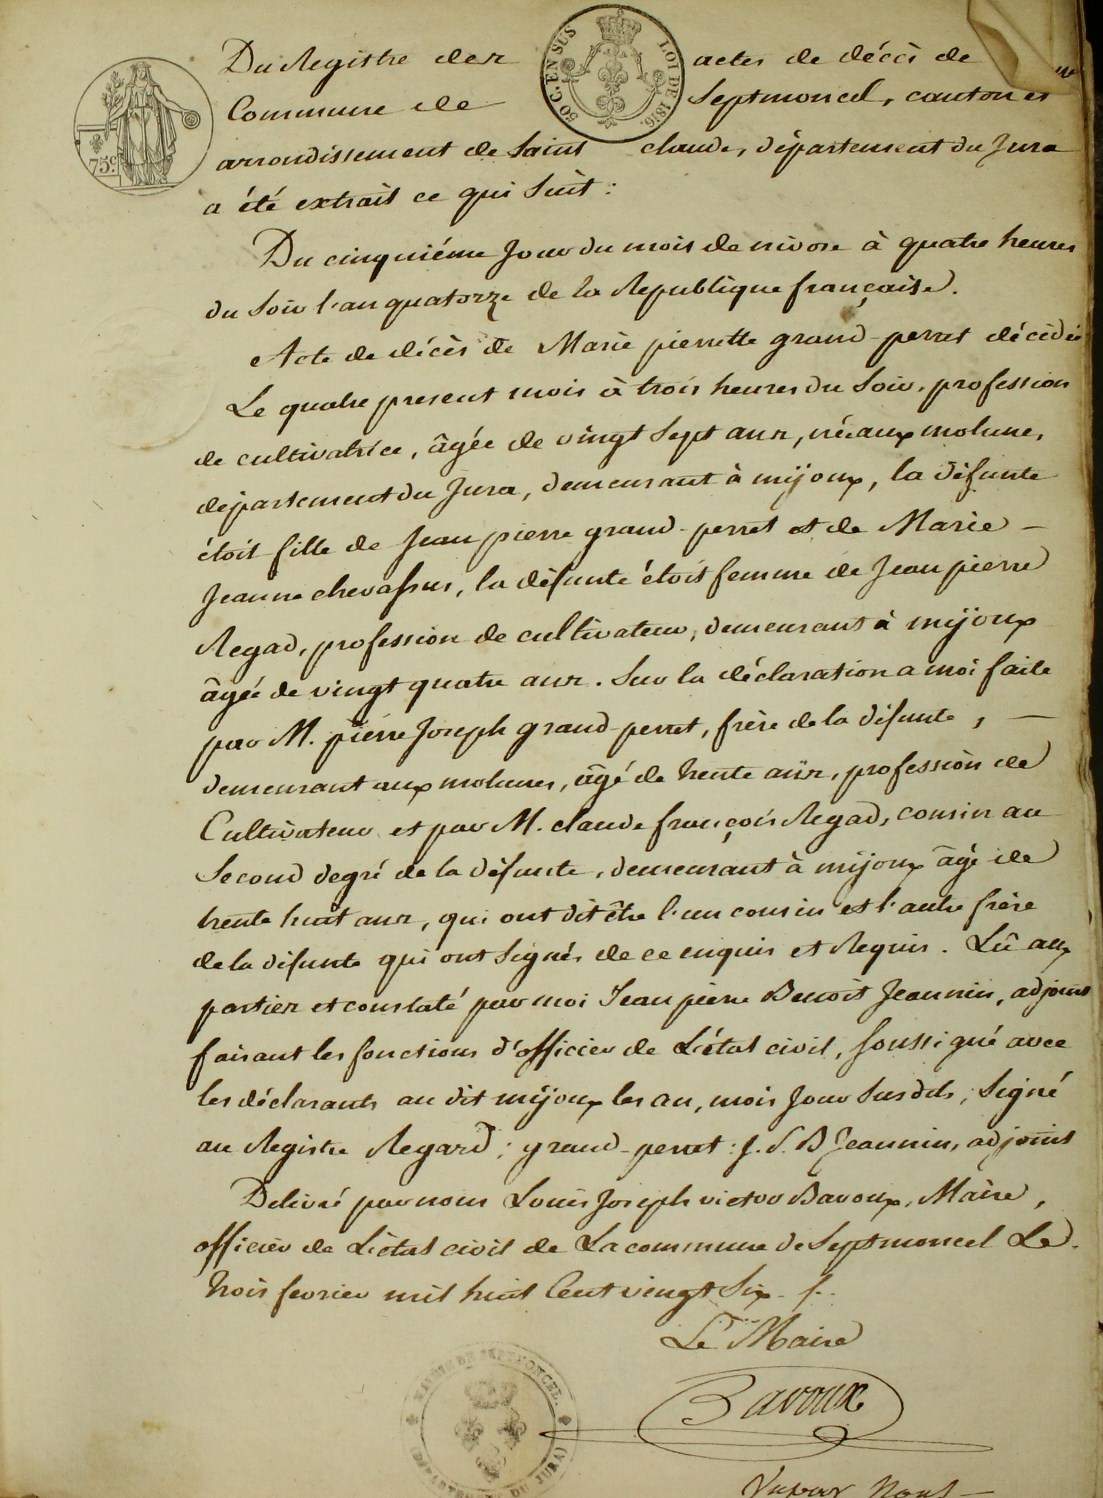 Du Registre des actes de décès de
Commune de Septmoncel, canton et
arrondissement de Saint claude, département du Jura
a été extrait ce qui suit :
Du cinquiéme Jour du mois de nivose à quatre heures
du Soir l'an quatorze de la Republique française.
Acte de décès de Marie pierrette grand-perret décédée
Le quatre present mois à trois heures du Soir, profession
de cultivatrice, âgée de vingt Sept ans, née aux molune,
département du Jura, demeurant à mijoux, la défunte
étoit fille de Jean pierre grand-perret et de Marie -
Jeanne chevassus, la défunte étoit femme de Jean pierre
Regad, profession de cultivateur, demeurant à mijoux
âgée de vingt quatre ans. Sur la déclaration a moi faite
par M. pierre Joseph grand-perret, frère de la défunte, —
demeurant aux molunes, âgé de trente ans, profession de
Cultivateur et par M. claude françois Regad, cousin au
Second degré de la défunte, demeurant à mijoux âgé de
trente huit ans, qui ont dit être l'un cousin et l'autre frère
de la défunte qui ont Signés de ce enquis et Requis. Lû aux
parties et constaté par moi Jean pierre Benoit Jeannin, adjoint
faisant les fonctions d'officier de L'état civil, soussigné avec
les déclarants au dit mijoux les an, mois Jour Susdits, Signé
au Registre Regard ; grand-perret : J. P. B Jeannin, adjoint
Delivré par nous Louis Joseph victor Bavoux, Maire,
officier de L'état civil de La commune de Septmoncel Le
trois fevrier mil huit Cent vingt Six
Le Maire
Bavoux
Vu par Nous
75c.
50 C. EN SUS
LOI DE 1816.
MAIRIE DE SEPTMONCEL.
(DÉPARTEMENT DU JURA)